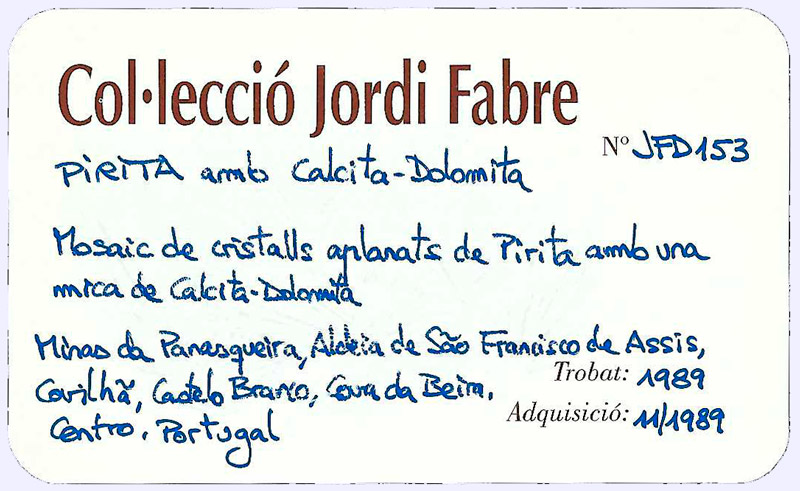 Col·lecció Jordi Fabre
Nº JFD153
PiRiTA amb Calcita-Dolomita
Mosaic de cristalls aplanats de Pirita amb una
mica de Calcita-Dolomita
Minas da Panasqueira, Aldeia de São Francisco de Assis,
Trobat: 1989
Covilhã, Castelo Branco, Cova da Beira,
Adquisició: 11/1989
Centro. Portugal